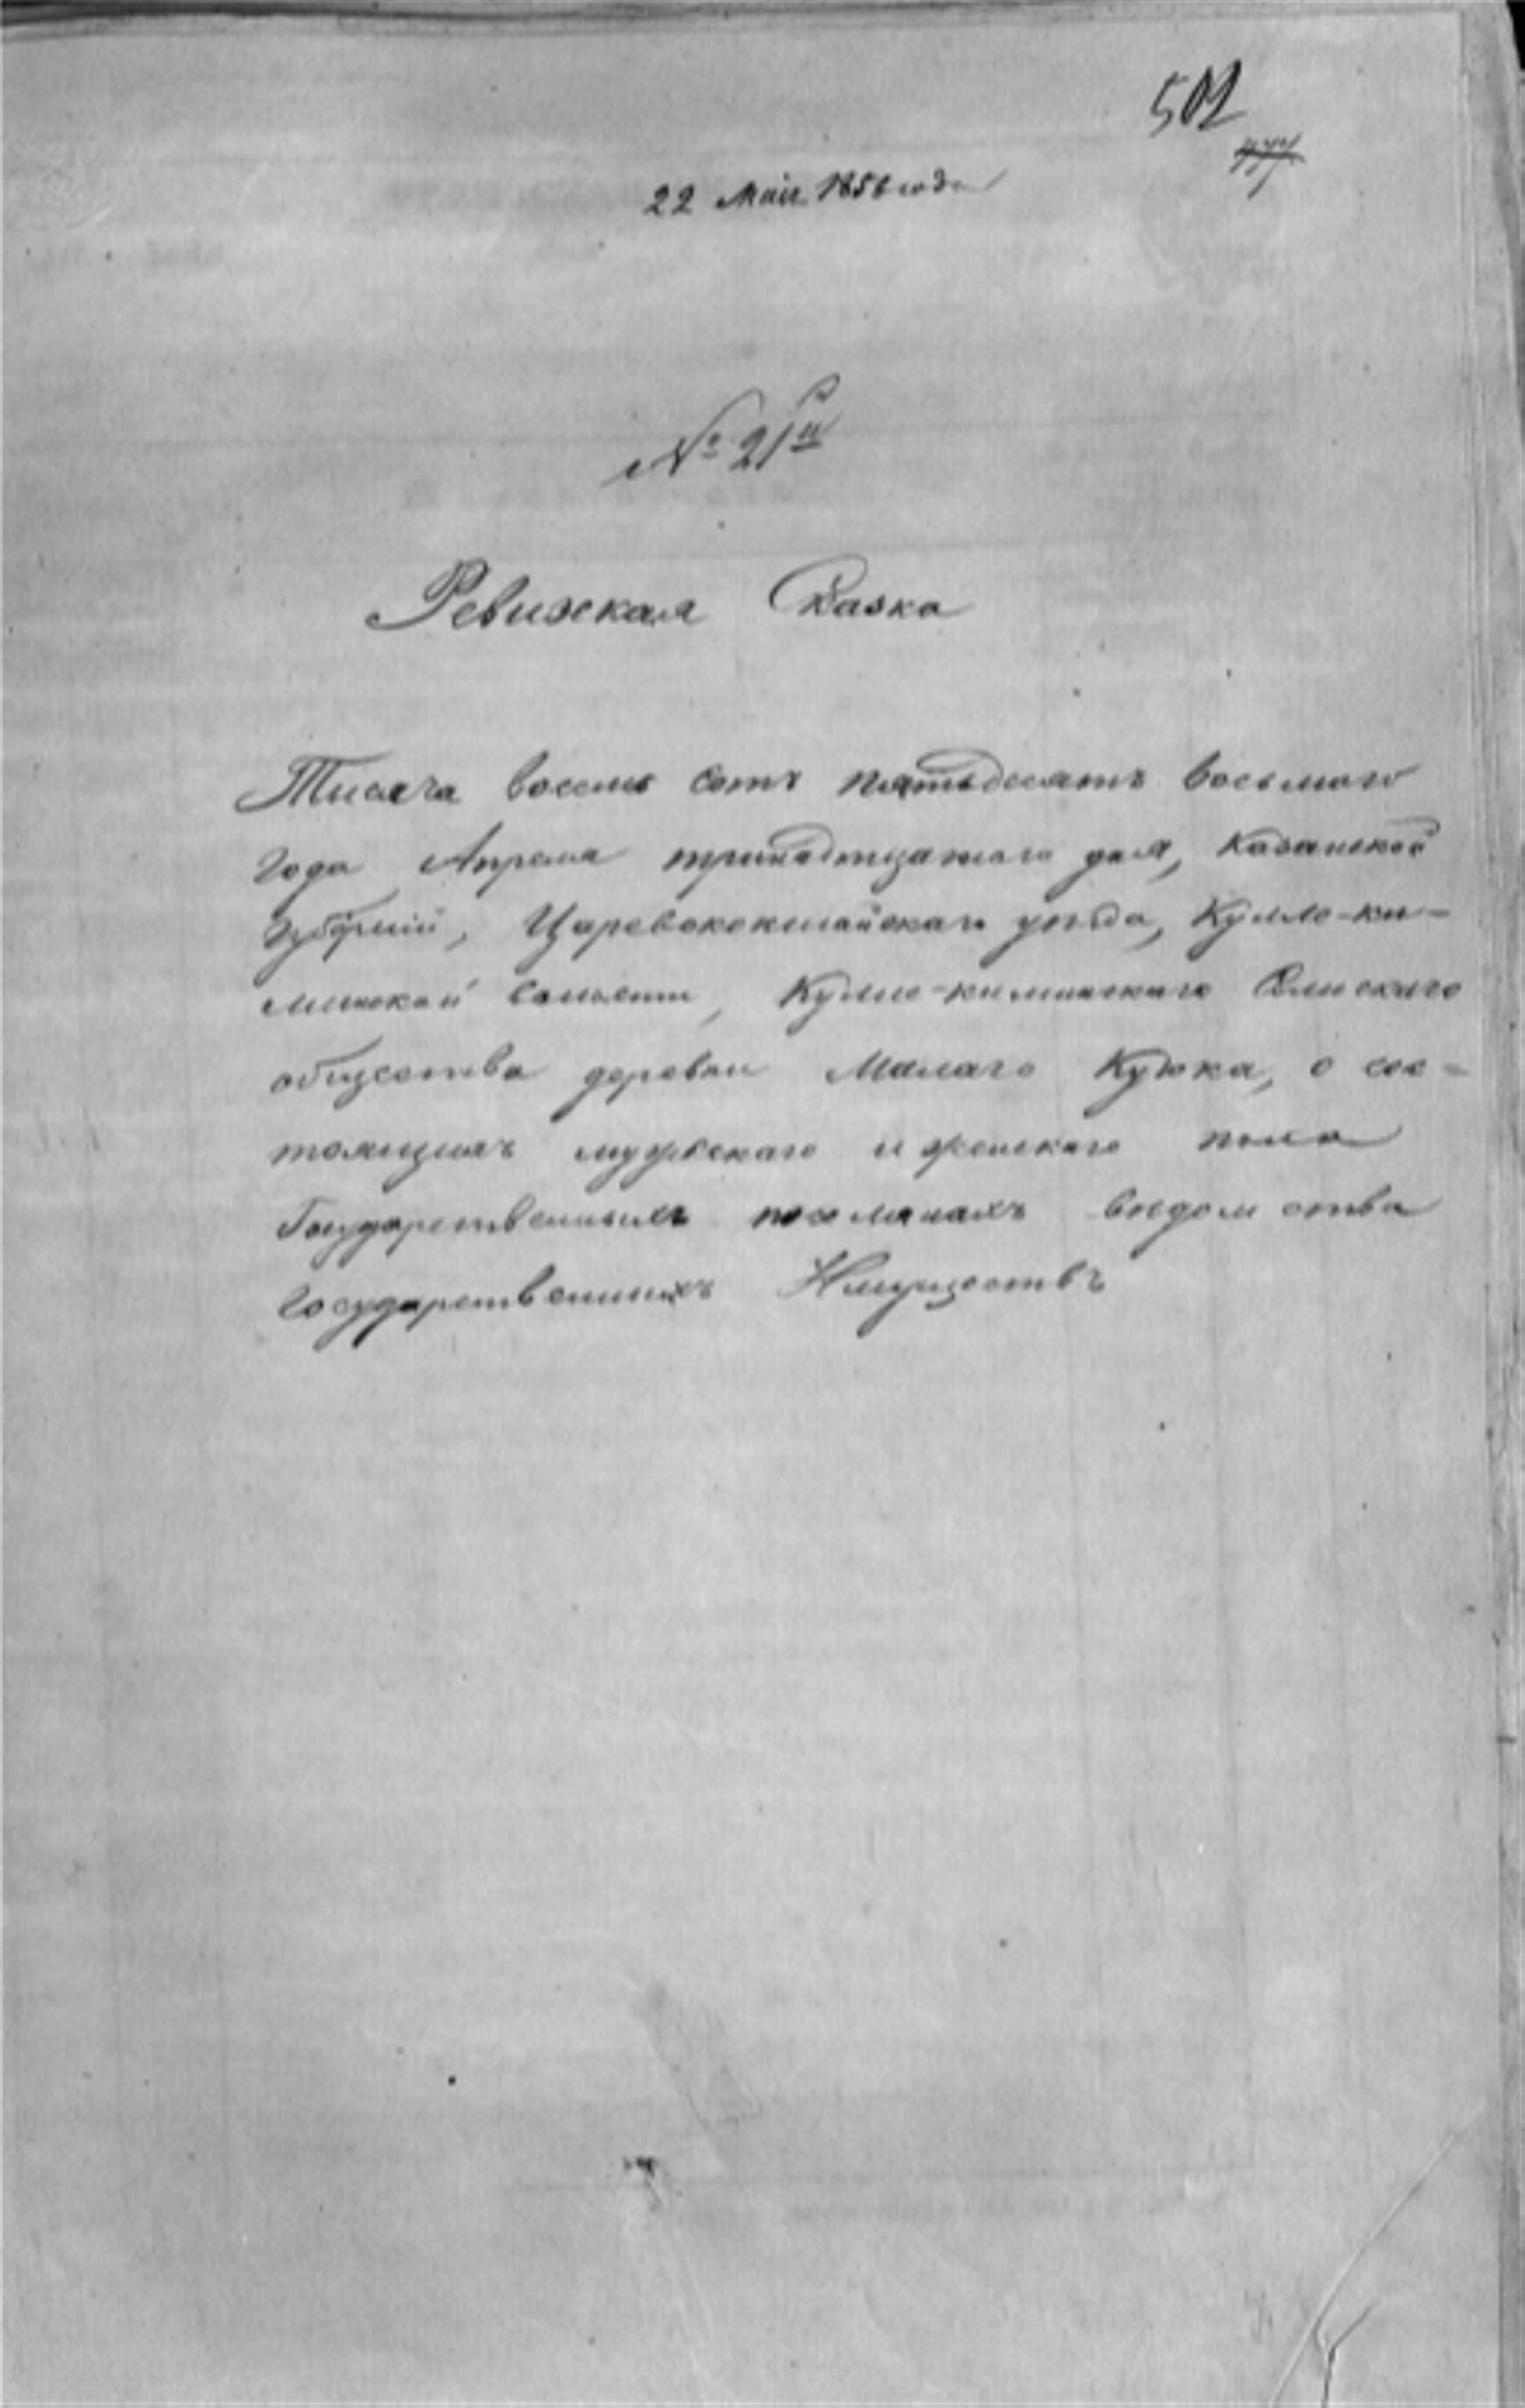 501
22 Мая 1858 года
№ 21й
Ревизская Сказка
Тисяча восемь сотъ пятьдесятъ восьмаго
года Апреля тринадтцатаго дня, Казанской
губерніи, Царевококшайскаго уѣзда, Кулле-ки-
минской волости, Кулле-киминскаго Сельскаго
общества деревни Малаго Куюка, о сос=
тоящихъ мужескаго и женскаго пола
Государственныхъ поселянахъ вѣдомства
Государственныхъ Имуществъ